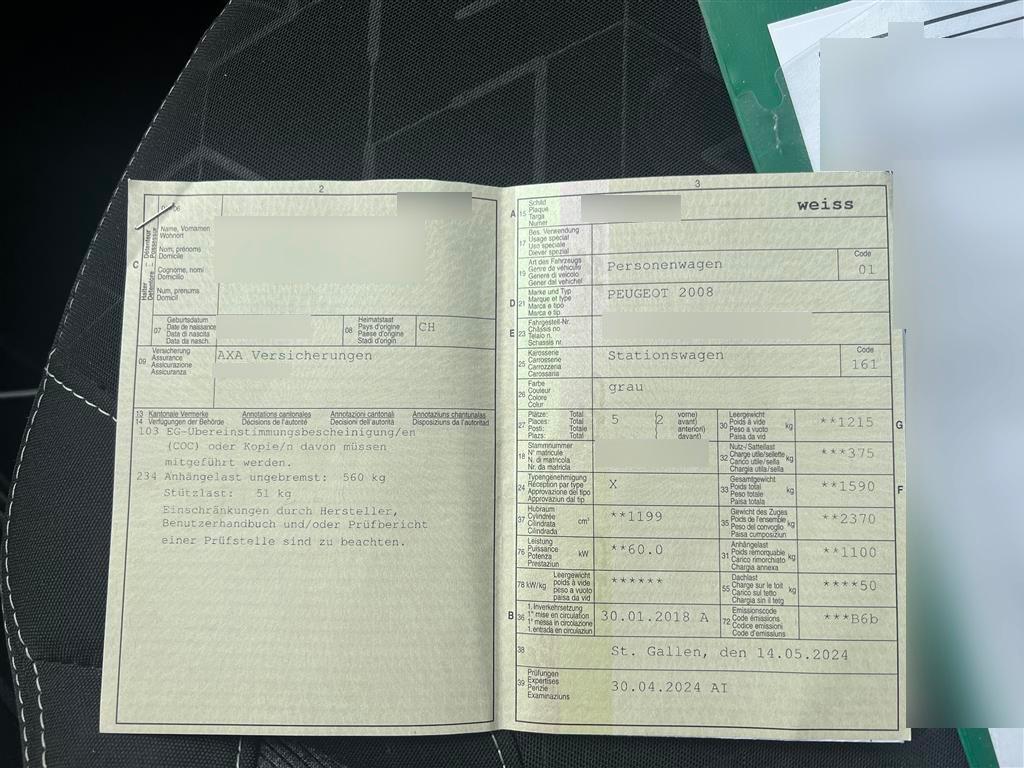 2
C
Halter
Détenteur
Détentur
Possessur
Name, Vornamen
Wohnort
Nom, prénoms
Domicile
Cognome, nomi
Domicilio
Num, prenums
Domicil
07 Geburtsdatum
Date de naissance
Data di nascita
Data da nasch.
08 Heimatstaat
Pays d'origine
Paese d'origine
Stadi d'origin
CH
09 Versicherung
Assurance
Assicurazione
Assicuranza
AXA Versicherungen
13 Kantonale Vermerke Annotations cantonales Annotazioni cantonali Annotaziuns chantunalas
14 Verfügungen der Behörde Décisions de l'autorité Decisioni dell'autorità Disposiziuns da l'autoritad
103 EG-Übereinstimmungsbescheinigung/en
(COC) oder Kopie/n davon müssen
mitgeführt werden.
234 Anhängelast ungebremst: 560 kg
Stützlast: 51 kg
Einschränkungen durch Hersteller,
Benutzerhandbuch und/oder Prüfbericht
einer Prüfstelle sind zu beachten.
3
A 15 Schild
Plaque
Targa
Numer
weiss
17 Bes. Verwendung
Usage spécial
Uso speciale
Diever spezial
19 Art des Fahrzeugs
Genre de véhicule
Genere di veicolo
Gener dal vehichel
Personenwagen
Code
01
D 21 Marke und Typ
Marque et type
Marca e tipo
Marca e tip
PEUGEOT 2008
E 23 Fahrgestell-Nr.
Châssis no
Telaio n.
Schassis nr.
25 Karosserie
Carrosserie
Carrozzeria
Carossaria
Stationswagen
Code
161
26 Farbe
Couleur
Colore
Colur
grau
27 Plätze: Total
Places: Total
Posti: Totale
Plazs: Total
5 (2 vorne)
avant)
anteriori)
davant)
30 Leergewicht
Poids à vide
Peso a vuoto
Paisa da vid
kg
**1215
G
18 Stammnummer
N° matricule
N. di matricola
Nr. da matricla
32 Nutz-/Sattellast
Charge utile/sellette
Carico utile/sella
Chargia utila/sella
kg
***375
24 Typengenehmigung
Réception par type
Approvazione del tipo
Approvaziun dal tip
X
33 Gesamtgewicht
Poids total
Peso totale
Paisa totala
kg
**1590
F
37 Hubraum
Cylindrée
Cilindrata
Cilindrada
cm³
**1199
35 Gewicht des Zuges
Poids de l'ensemble
Peso del convoglio
Paisa cumposiziun
kg
**2370
76 Leistung
Puissance
Potenza
Prestaziun
kW
**60.0
31 Anhängelast
Poids remorquable
Carico rimorchiato
Chargia annexa
kg
**1100
78 kW/kg Leergewicht
poids à vide
peso a vuoto
paisa da vid
******
55 Dachlast
Charge sur le toit
Carico sul tetto
Chargia sin il tetg
kg
****50
B 36 1. Inverkehrsetzung
1re mise en circulation
1a messa in circolazione
1. entrada en circulaziun
30.01.2018 A
72 Emissionscode
Code émissions
Codice emissioni
Code d'emissiuns
***B6b
38
St. Gallen, den 14.05.2024
39 Prüfungen
Expertises
Perizie
Examinaziuns
30.04.2024 AI